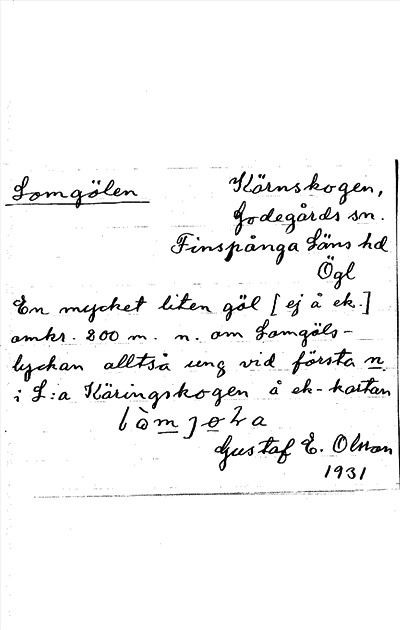 Lomgölen
Kärnskogen,
Godegårds sn.
Finspånga Läns hd
Ögl
En mycket liten göl [ej å ek.]
omkr. 200 m. n. om Lomgöls-
lyckan alltså ung vid första n
i L:a Käringskogen å ek-kartan
Gustaf E. Olson
1931